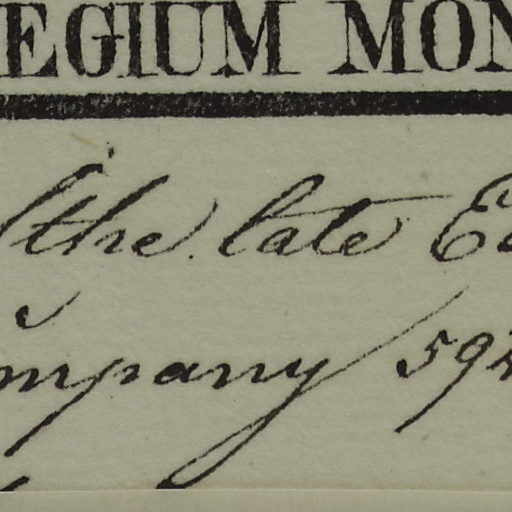 EGIUM MON
the late Ea
mpany 592